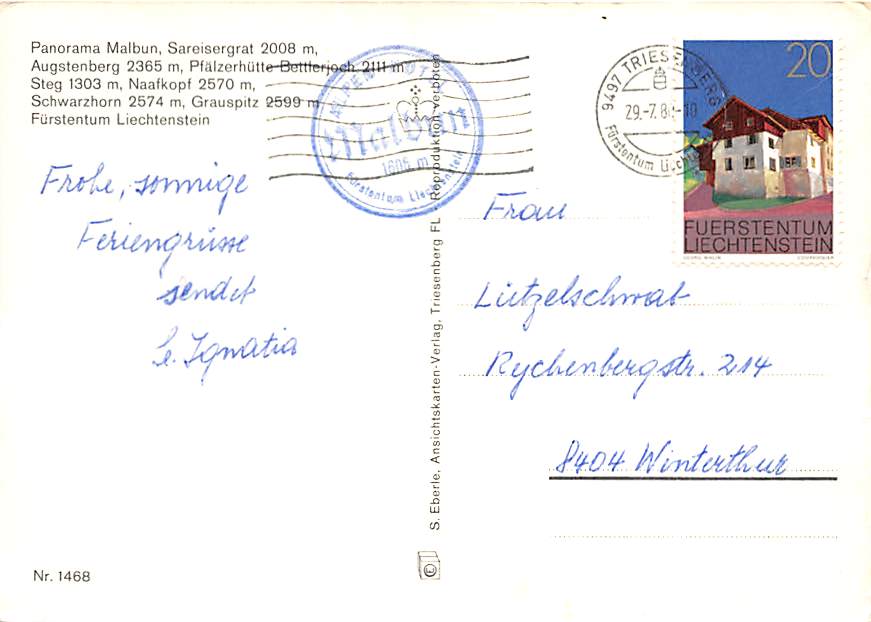 Panorama Malbun, Sareisergrat 2008 m,
Augstenberg 2365 m, Pfälzerhütte Bettlerjoch 2111 m
Steg 1303 m, Naafkopf 2570 m,
Schwarzhorn 2574 m, Grauspitz 2599 m
Fürstentum Liechtenstein
Frohe, sonnige
Feriengrüsse
sendet
Ignatia
Nr. 1468
Malbun
1605 m
Fürstentum Liechtenstein
S. Eberle, Ansichtskarten-Verlag, Triesenberg FL Reproduktion verboten
©
9497 TRIESENBERG
29.-7.8
Fürstentum
20
FUERSTENTUM
LIECHTENSTEIN
GEORG MALIN
COURVOISIER
Frau
Lützelschwab
Rychenbergstr. 214
8404 Winterthur